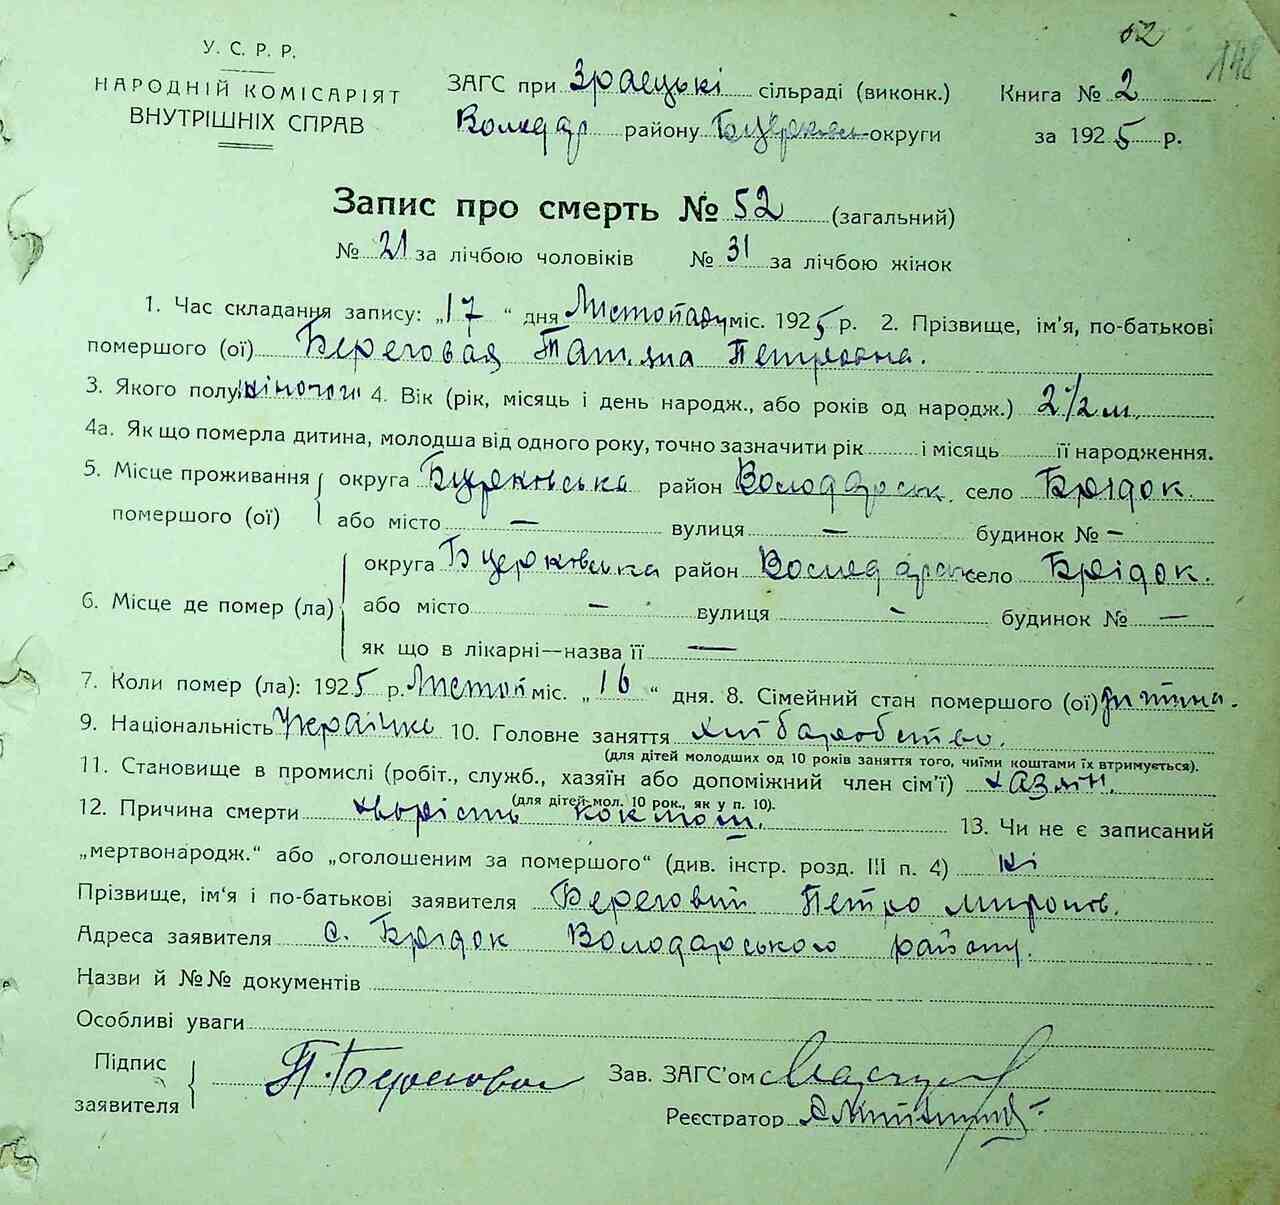 52
148
У. С. Р. Р.
НАРОДНІЙ КОМІСАРІЯТ
ВНУТРІШНІХ СПРАВ
ЗАГС при сільраді (виконк.)
Володар району Бцерковськ округи
Книга № 2
за 1925 р.
Запис про смерть № 52 (загальний)
№ 21 за лічбою чоловіків № 31 за лічбою жінок
1. Час складання запису: „17“ дня Листопаду міс. 1925 р. 2. Прізвище, ім'я, по-батькові
помершого (ої) Береговая Татяна Петровна.
3. Якого полу жіночого 4. Вік (рік, місяць і день народж., або років од народж.) 2½ м.
4а. Як що померла дитина, молодша від одного року, точно зазначити рік і місяць її народження.
5. Місце проживання помершого (ої) округа Бцерковська район Володарськ. село Брідок.
або місто — вулиця — будинок № —
6. Місце де помер (ла) округа Бцерковська район Володарськ село Брідок.
або місто — вулиця - будинок № —
як що в лікарні—назва її —
7. Коли помер (ла): 1925 р. Листоп міс. „16“ дня. 8. Сімейний стан помершого (ої) дитина.
9. Національність Українка 10. Головне заняття хліборобство.
(для дітей молодших од 10 років заняття того, чиїми коштами їх втримується).
11. Становище в промислі (робіт., служб., хазяїн або допоміжний член сім'ї) хазяїн.
(для дітей мол. 10 рок., як у п. 10).
12. Причина смерти 13. Чи не є записаний
„мертвонародж.“ або „оголошеним за помершого“ (див. інстр. розд. III п. 4) ні
Прізвище, ім'я і по-батькові заявителя Береговий Петро Миронов.
Адреса заявителя с. Брідок Володарського району.
Назви й №№ документів
Особливі уваги
Підпис заявителя Зав. ЗАГС'ом
Реєстратор